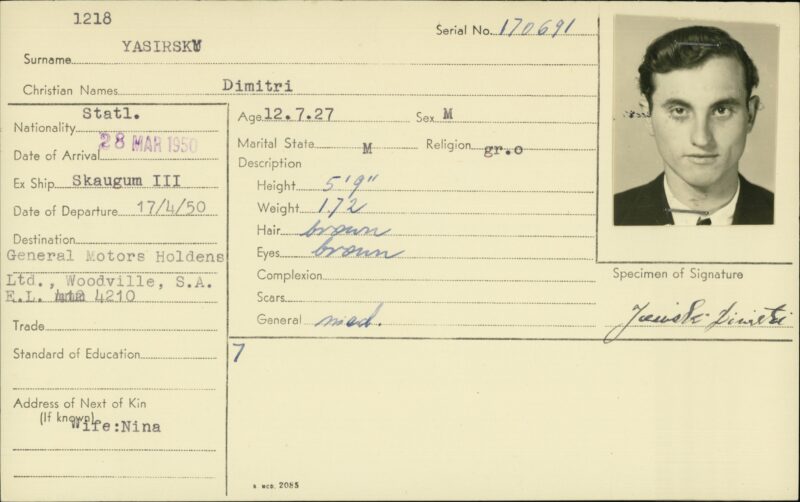 1218
YASIRSKY
Surname
Serial No. 170691
Christian Names Dimitri
Statl.
Nationality
28 MAR 1950
Date of Arrival
Ex Ship Skaugum III
Date of Departure 17/4/50
Destination
General Motors Holdens
Ltd., Woodville, S.A.
E.L. 4210
Trade
Standard of Education
Address of Next of Kin
(If known)
Wife:Nina
Age 12.7.27 Sex M
Marital State M Religion gr.o
Description
Height 5'9"
Weight 172
Hair brown
Eyes brown
Complexion
Scars
General med.
7
Specimen of Signature
Dimitri
2085